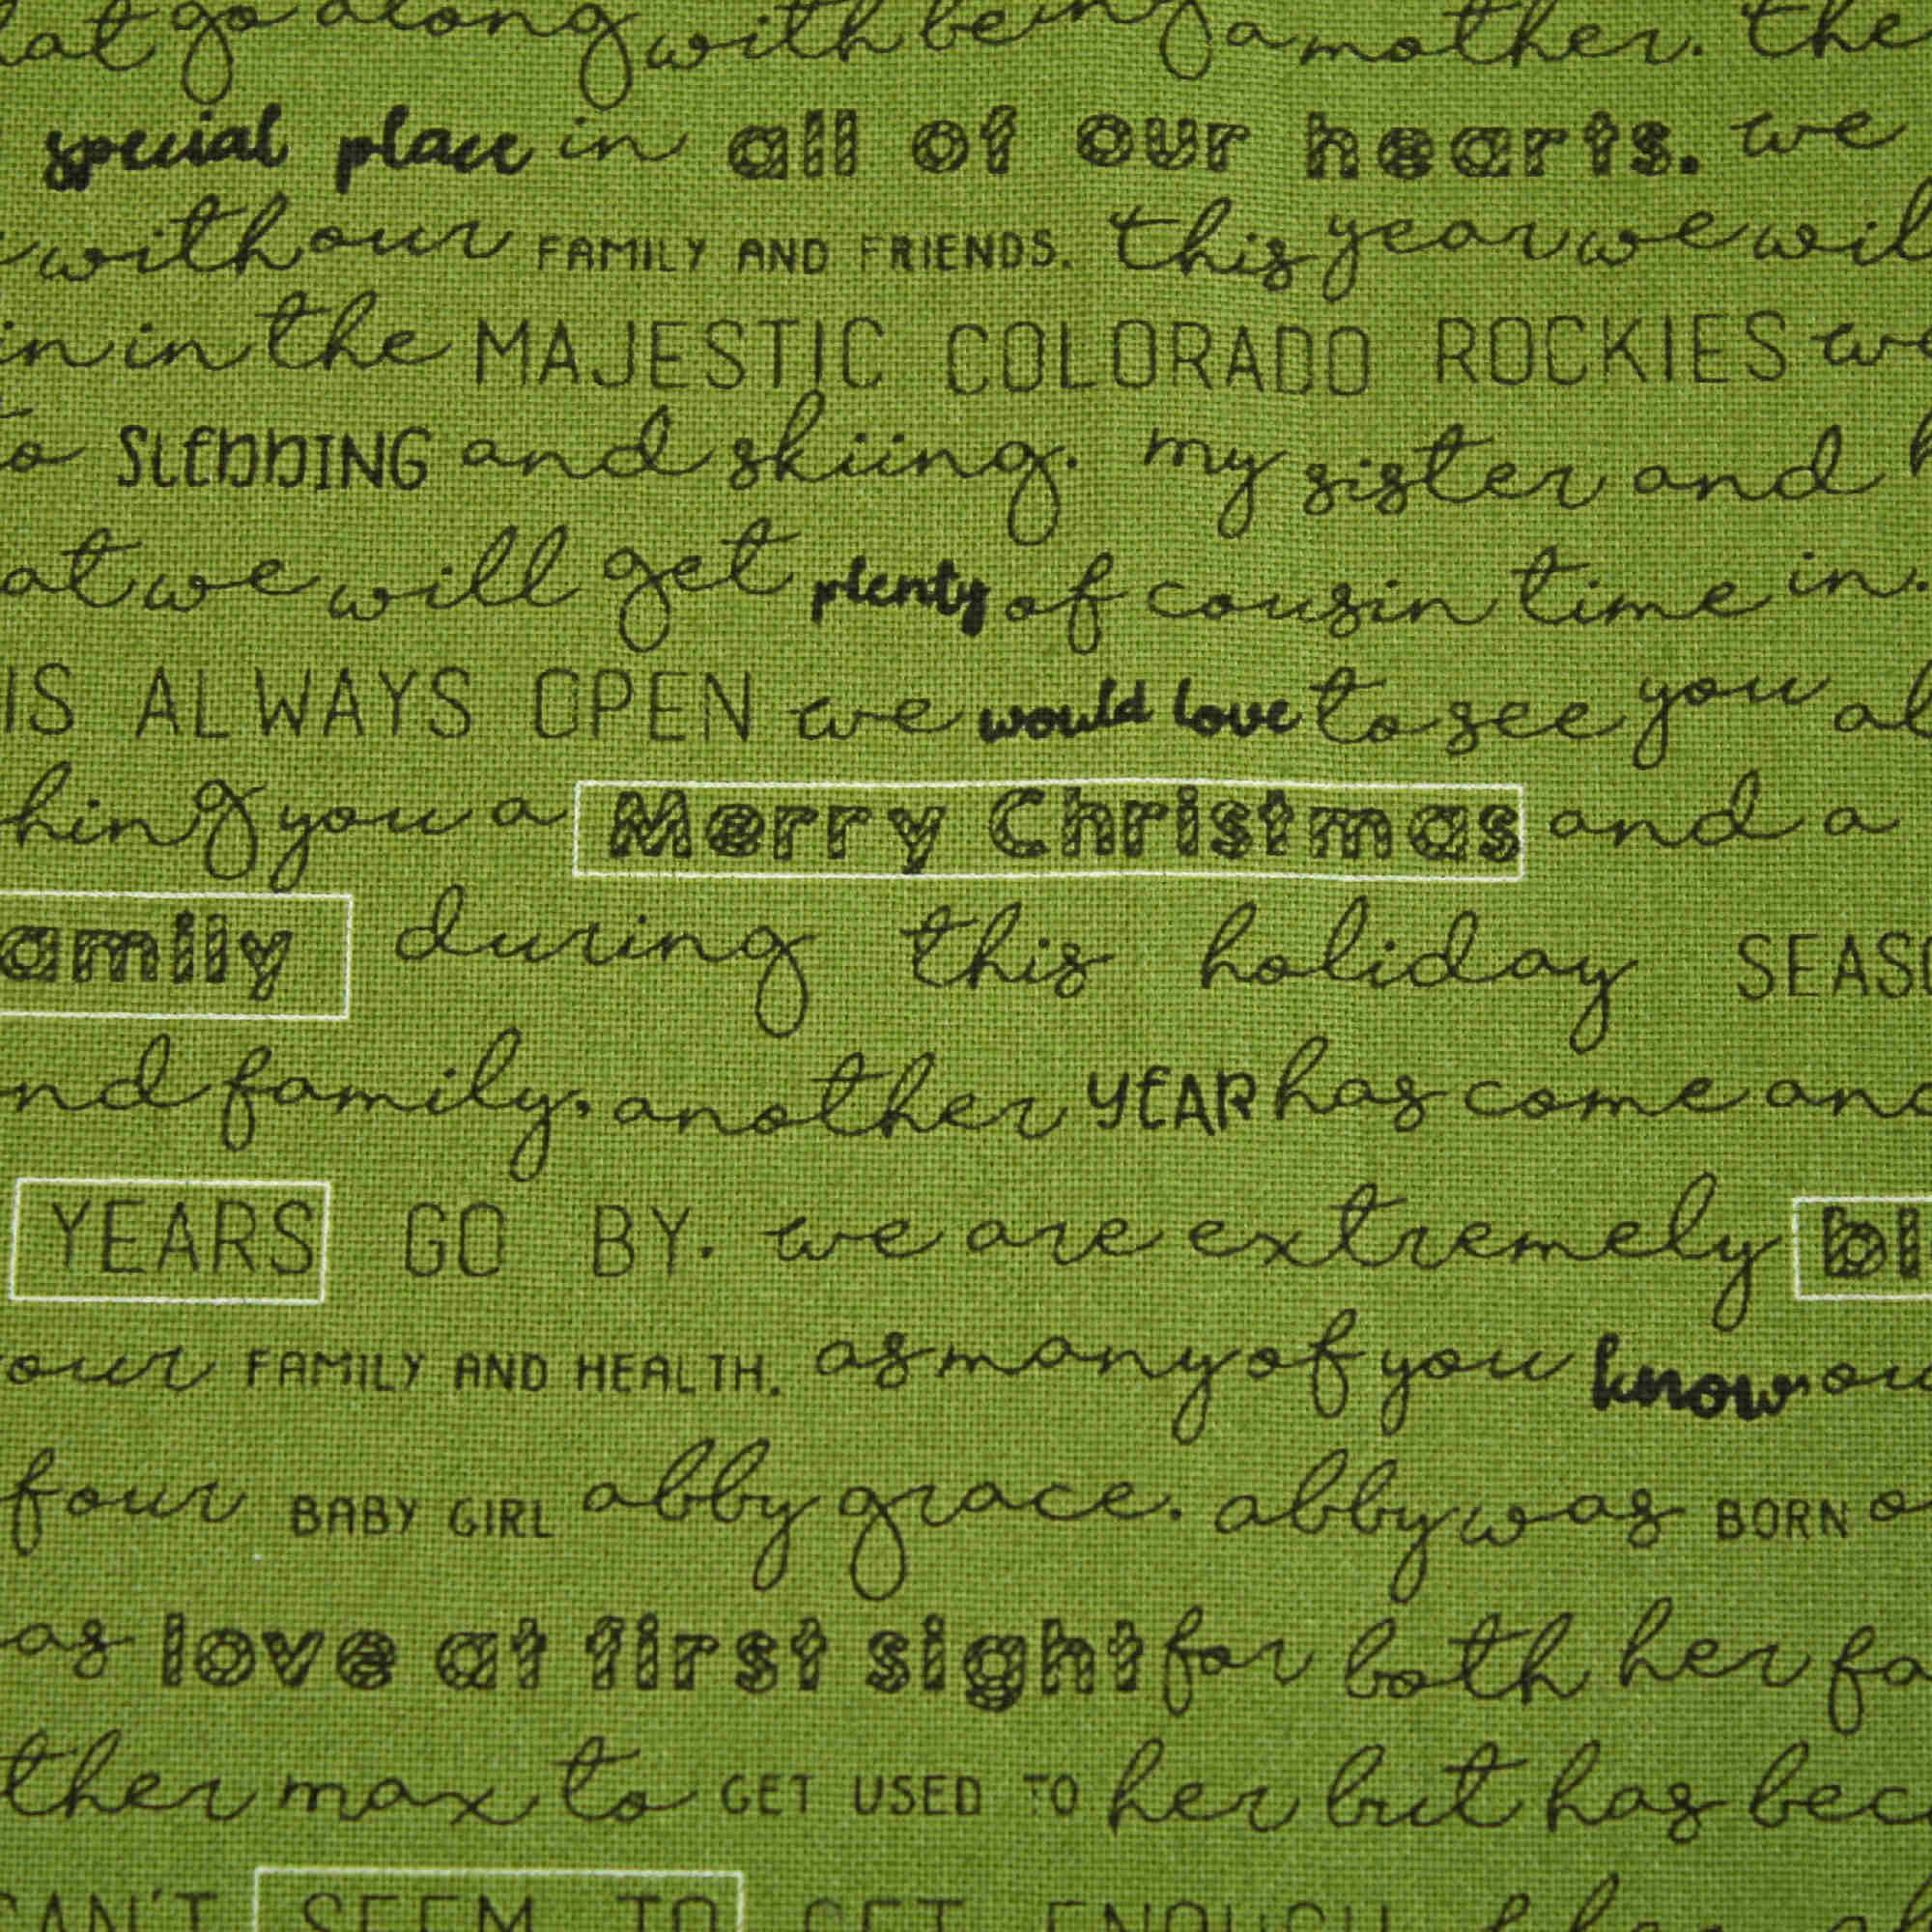 at go along with being a mother. the
special place in all of our hearts. we
with our FAMILY AND FRIENDS. this year we wil
in in the MAJESTIC COLORADO ROCKIES we
to SLEDDING and skiing. my sister and h
at we will get plenty of cousin time in
IS ALWAYS OPEN we would love to see you al
hing you a Merry Christmas and a
amily during this holiday SEASO
nd family. another YEAR has come and
YEARS GO BY. we are extremely bl
our FAMILY AND HEALTH. as many of you know ou
four BABY GIRL abby grace. abby was BORN o
as love at first sight for both her fa
ther max to GET USED TO her but has bec
CAN'T SEEM TO GET ENOUGH